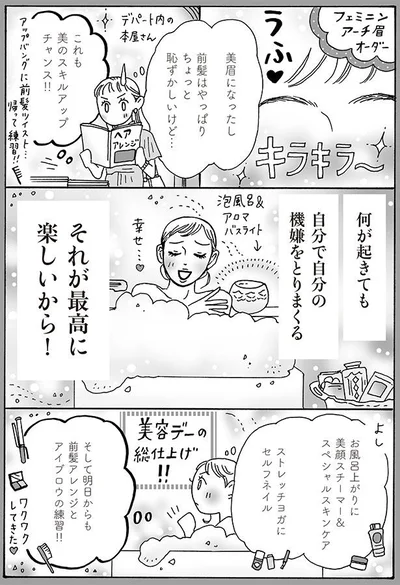 フェミニン
アーチ眉
オーダー
うふ♥
キラキラ〜
美眉になったし
前髪はやっぱり
ちょっと
恥ずかしいけど…
デパート内の
本屋さん
ヘア
アレンジ
これも
美のスキルアップ
チャンス!!
アップバングに前髪ツイスト…
帰って練習!!
何が起きても
自分で自分の
機嫌をとりまくる
泡風呂&
アロマ
バスライト
幸せ…♥
それが最高に
楽しいから!
よし
お風呂上がりに
美顔スチーマー&
スペシャルスキンケア
ストレッチヨガに
セルフネイル
美容デーの
総仕上げ!!
そして明日からも
前髪アレンジと
アイブロウの練習!!
ワクワク
してきた♡